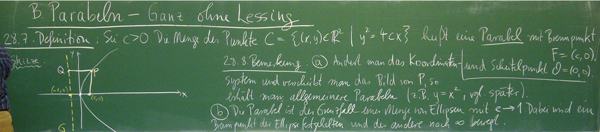 B. Parabeln – Ganz ohne Lessing
28.7. Definition: Sei c>0 Die Menge der Punkte C = {(x,y)∈ℝ² | y² = 4cx} heißt eine Parabel mit Brennpunkt
F = (c,0)
und Scheitelpunkt
O = (0,0).
Skizze:
28.8. Bemerkung: (a) Ändert man das Koordinaten-
system und verschiebt man das Bild von P, so
erhält man allgemeinere Parabeln (z.B. y = x², vgl. später).
(b) Die Parabel ist der Grenzfall einer Menge von Ellipsen mit e → 1 Dabei wird ein
Brennpunkt der Ellipse festgehalten und der andere nach ∞ bewegt.
y
Q
P
(-c,0)
(c,0)
x
G